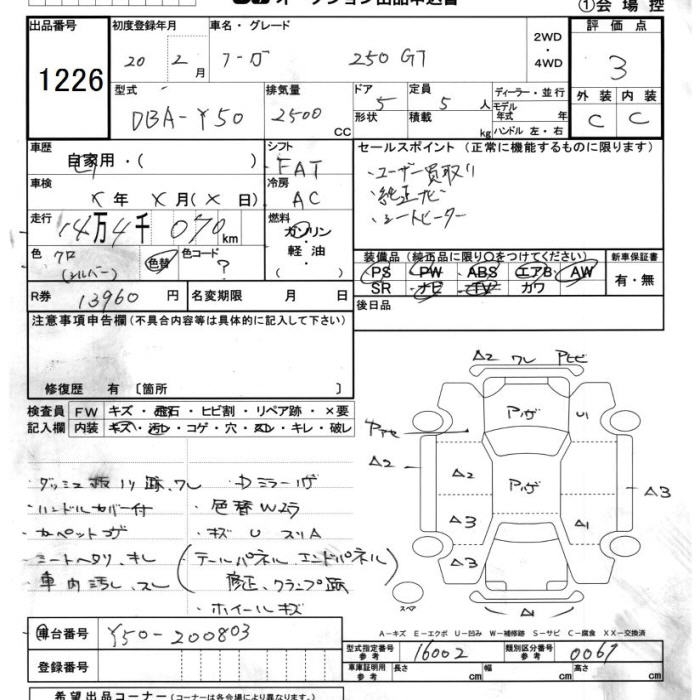 ①会場控
出品番号
1226
初度登録年月
20 2 月
車名・グレード
フーガ 250 GT
2WD
・
4WD
評価点
3
型式
DBA-Y50
排気量
2500 CC
ドア
5
形状
定員
5 人
積載 kg
ディーラー・並行
モデル年式 年
ハンドル 左・右
外装 内装
C C
車歴
自家用・( )
シフト
FAT
車検
× 年 × 月 (× 日)
冷房
AC
走行
14万4千070km
燃料
ガソリン
軽油
色
クロ
(シルバー)
色替
色コード
?
セールスポイント (正常に機能するものに限ります)
・ユーザー買取り
・純正ナビ
・シートヒーター
装備品 (純正品に限り○をつけてください)
PS PW ABS エアB AW
SR ナビ カワ
新車保証書
有・無
R券
13960 円
名変期限 月 日
後日品
注意事項申告欄 (不具合内容等は具体的に記入して下さい)
修復歴 有 〔箇所 〕
検査員記入欄
FW キズ・飛石・ヒビ割・リペア跡・×要
内装 キズ・汚レ・コゲ・穴・スレ・キレ・破レ
・ハンドルカバー付
・シートヘタリ、キレ
・車内汚レ、スレ
・Dミラーキズ
・色替Wムラ
・キズ U スリA
(テールパネル、エンドパネル
修正、クランプ跡)
・ホイールキズ
A2 ワレ Pヒビ
Pキズ
U1
A2
A2
Pキズ
A3
A3
A1
A3
A1
スペア
A-キズ E-エクボ U-凹み W-補修跡 S-サビ C-腐食 XX-交換済
車台番号
Y50-200803
登録番号
型式指定番号
参考
16002
類別区分番号
参考
0067
車庫証明用
参考
長さ cm
幅 cm
高さ cm
希望出品コーナー (コーナーは各会場により異なります)